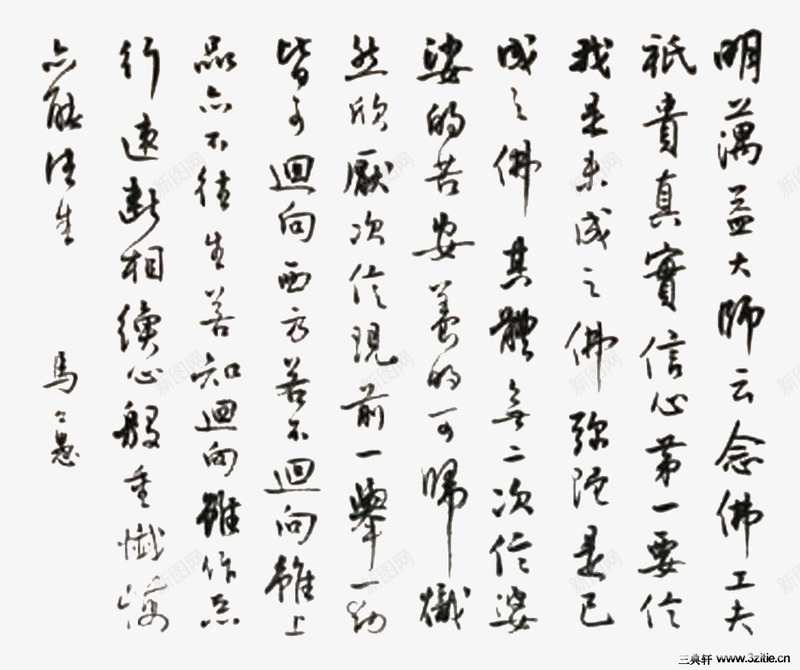 明蕅益大師云念佛工夫
祇貴真實信心第一要信
我是未成之佛彌陀是已
成之佛其體無二次信娑
婆的苦安養的可歸熾
然欣厭次信現前一舉一動
皆可迴向西方若不迴向雖上
品亦不往生若知迴向雖作惡
行速斷相續心殷重懺悔
亦能往生
馬一愚
三典轩 www.3zitie.cn
新图网